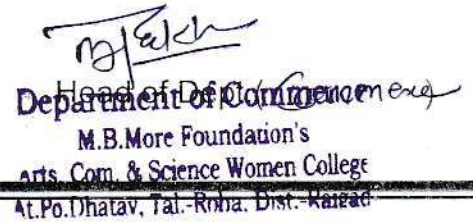 Head of Dept. (Commerce)
Department of Commerce
M.B.More Foundation's
arts, Com. & Science Women College
At.Po.Dhatav, Tal.-Roha, Dist.-Raigad